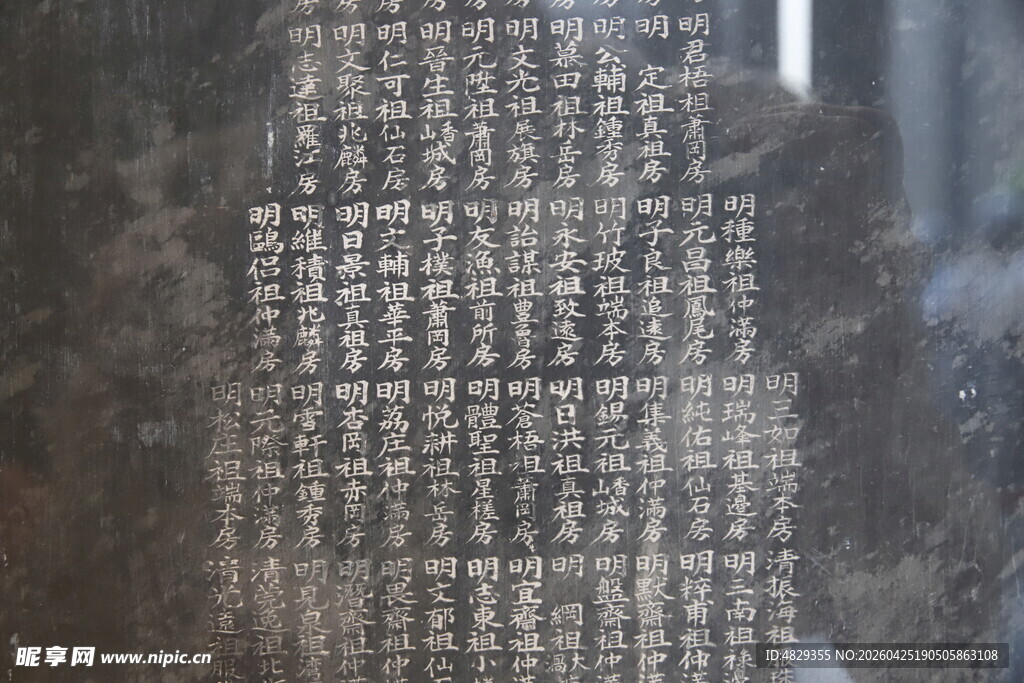 明君梧祖蕭岡房
明定祖真祖房
明公輔祖鍾秀房
明慕田祖林岳房
明文光祖展旗房
明元陞祖蕭岡房
明晉生祖香山城房
明仁可祖仙石房
明文聚祖兆麟房
明志達祖羅江房
明種樂祖仲滿房
明元昌祖鳳尾房
明子良祖追遠房
明竹坡祖端本房
明永安祖致遠房
明詒謀祖豊魯房
明友漁祖前所房
明子樸祖蕭岡房
明文輔祖華平房
明日景祖真祖房
明維積祖兆麟房
明鷗侶祖仲滿房
明三如祖端本房
明瑞峰祖基邊房
明純佑祖仙石房
明集義祖仲滿房
明錫元祖香山城房
明日洪祖真祖房
明蒼梧祖蕭岡房
明體聖祖星槎房
明悅耕祖林岳房
明荔庄祖仲滿房
明杏岡祖赤岡房
明雪軒祖鍾秀房
明元際祖仲滿房
明松庄祖端本房
清振海祖
明三南祖祿
明粹甫祖仲
明默齋祖仲滿
明盤齋祖仲
明綱祖大
明宜齋祖仲滿
明志東祖小
明文郁祖仙石
明畏齋祖仲
明潛齋祖仲
明見泉祖灣
清莞逸祖北
清光遠祖
昵享网 www.nipic.cn
ID:4829355 NO:20260425190505863108